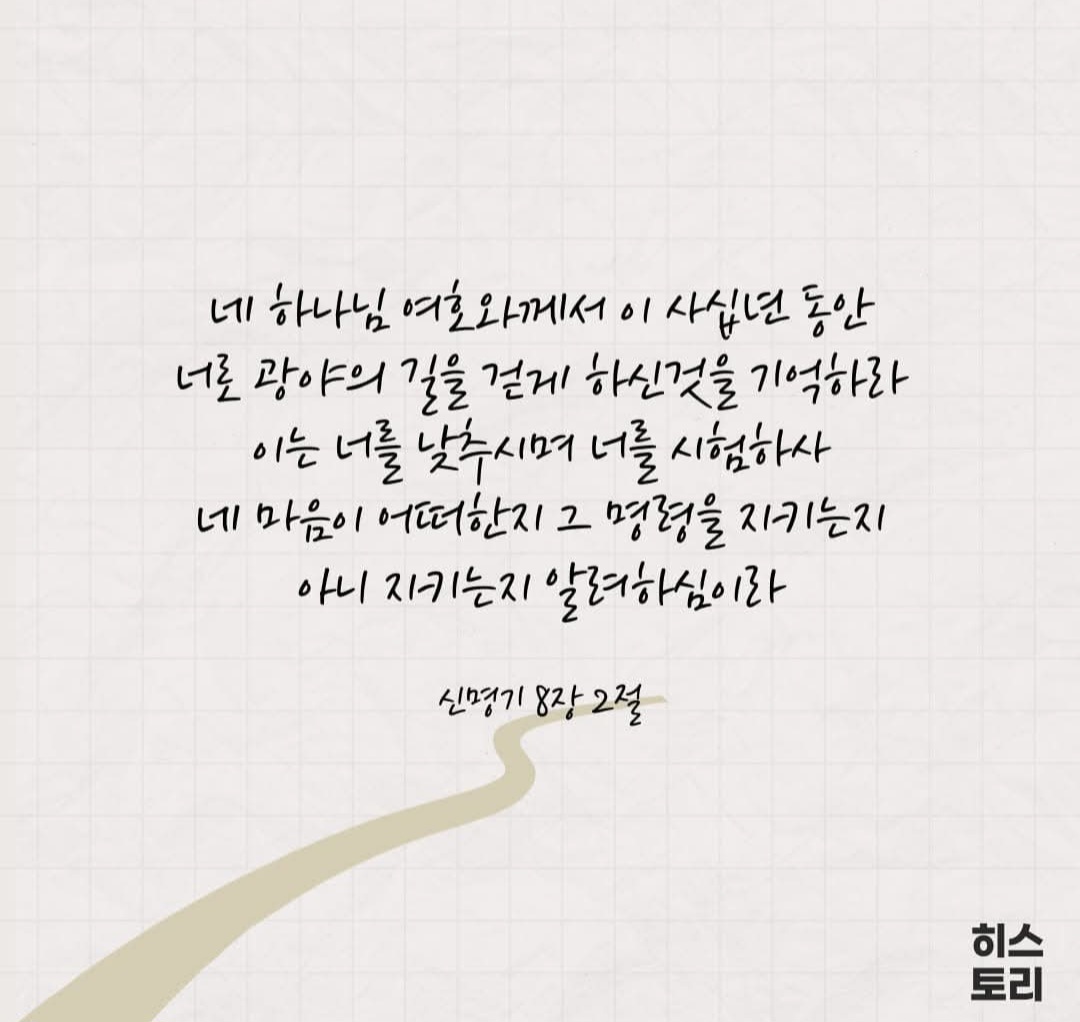 네 하나님 여호와께서 이 사십년 동안
너로 광야의 길을 걷게 하신것을 기억하라
이는 너를 낮추시며 너를 시험하사
네 마음이 어떠한지 그 명령을 지키는지
아니 지키는지 알려하심이라
신명기 8장 2절
히스
토리